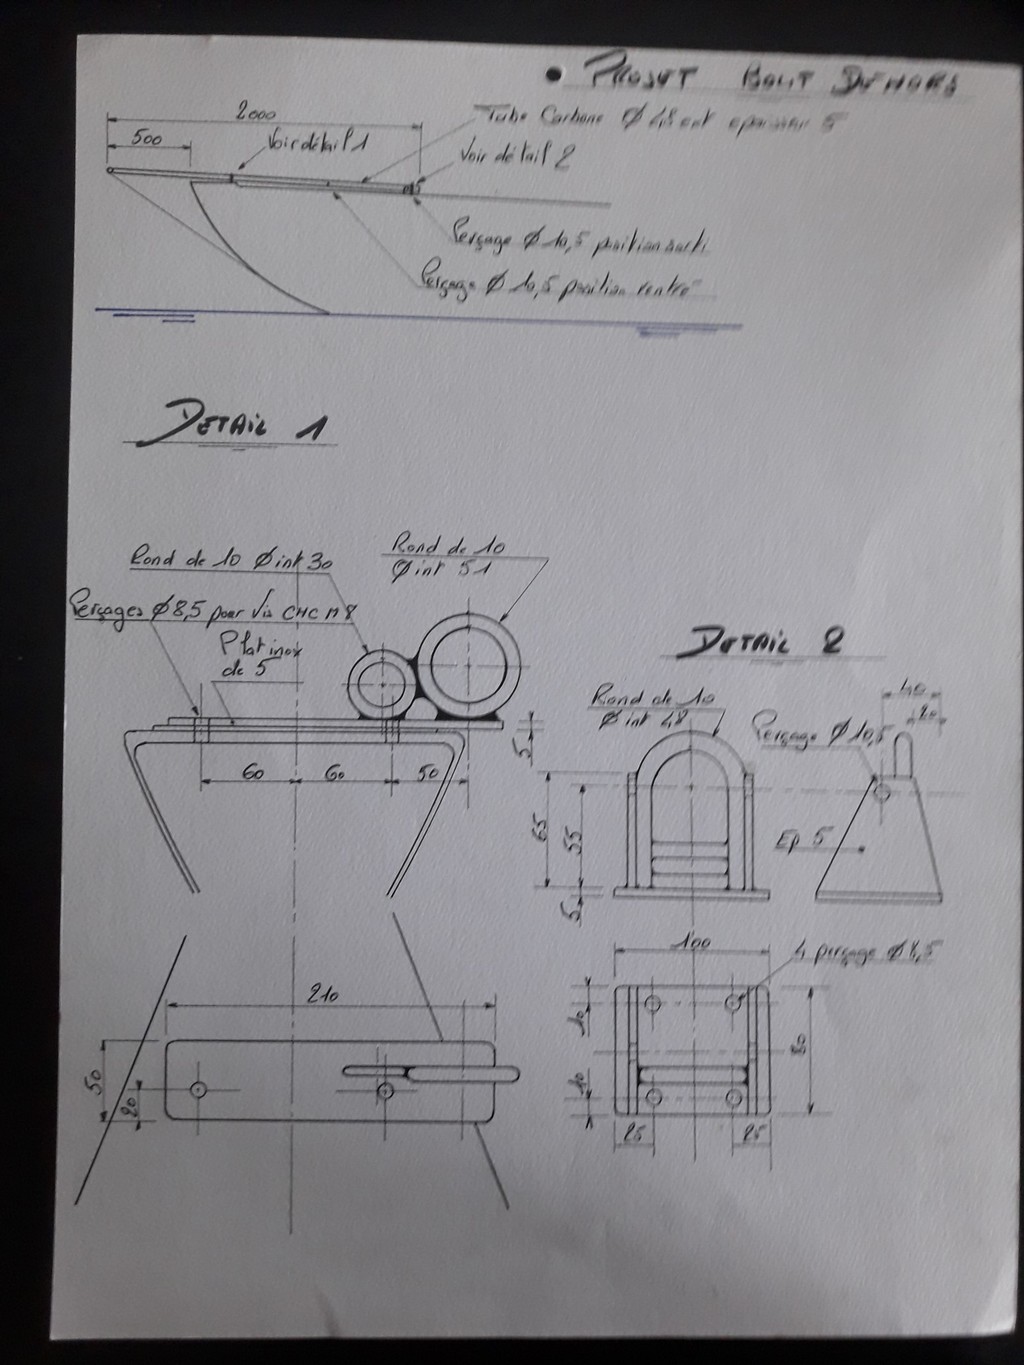 • PROJET BOUT DEHORS
2000
Tube Carbone Ø 48 ext epaisseur 5
500
Voir détail 1
Voir détail 2
Perçage Ø 10,5 position sorti
Perçage Ø 10,5 position rentré
DETAIL 1
Rond de 10 Ø int 30
Rond de 10
Ø int 51
Perçages Ø 8,5 pour Vis CHC M8
Plat inox
de 5
5
60
60
50
210
50
20
DETAIL 2
Rond de 10
Ø int 48
40
20
Perçage Ø 10,5
65
55
5
Ep 5
100
4 perçage Ø 8,5
10
10
80
25
25